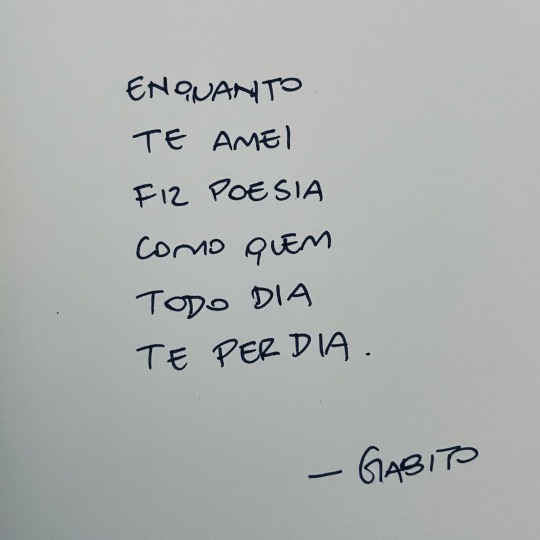 ENQUANTO
TE AMEI
FIZ POESIA
COMO QUEM
TODO DIA
TE PERDIA.
— GABITO